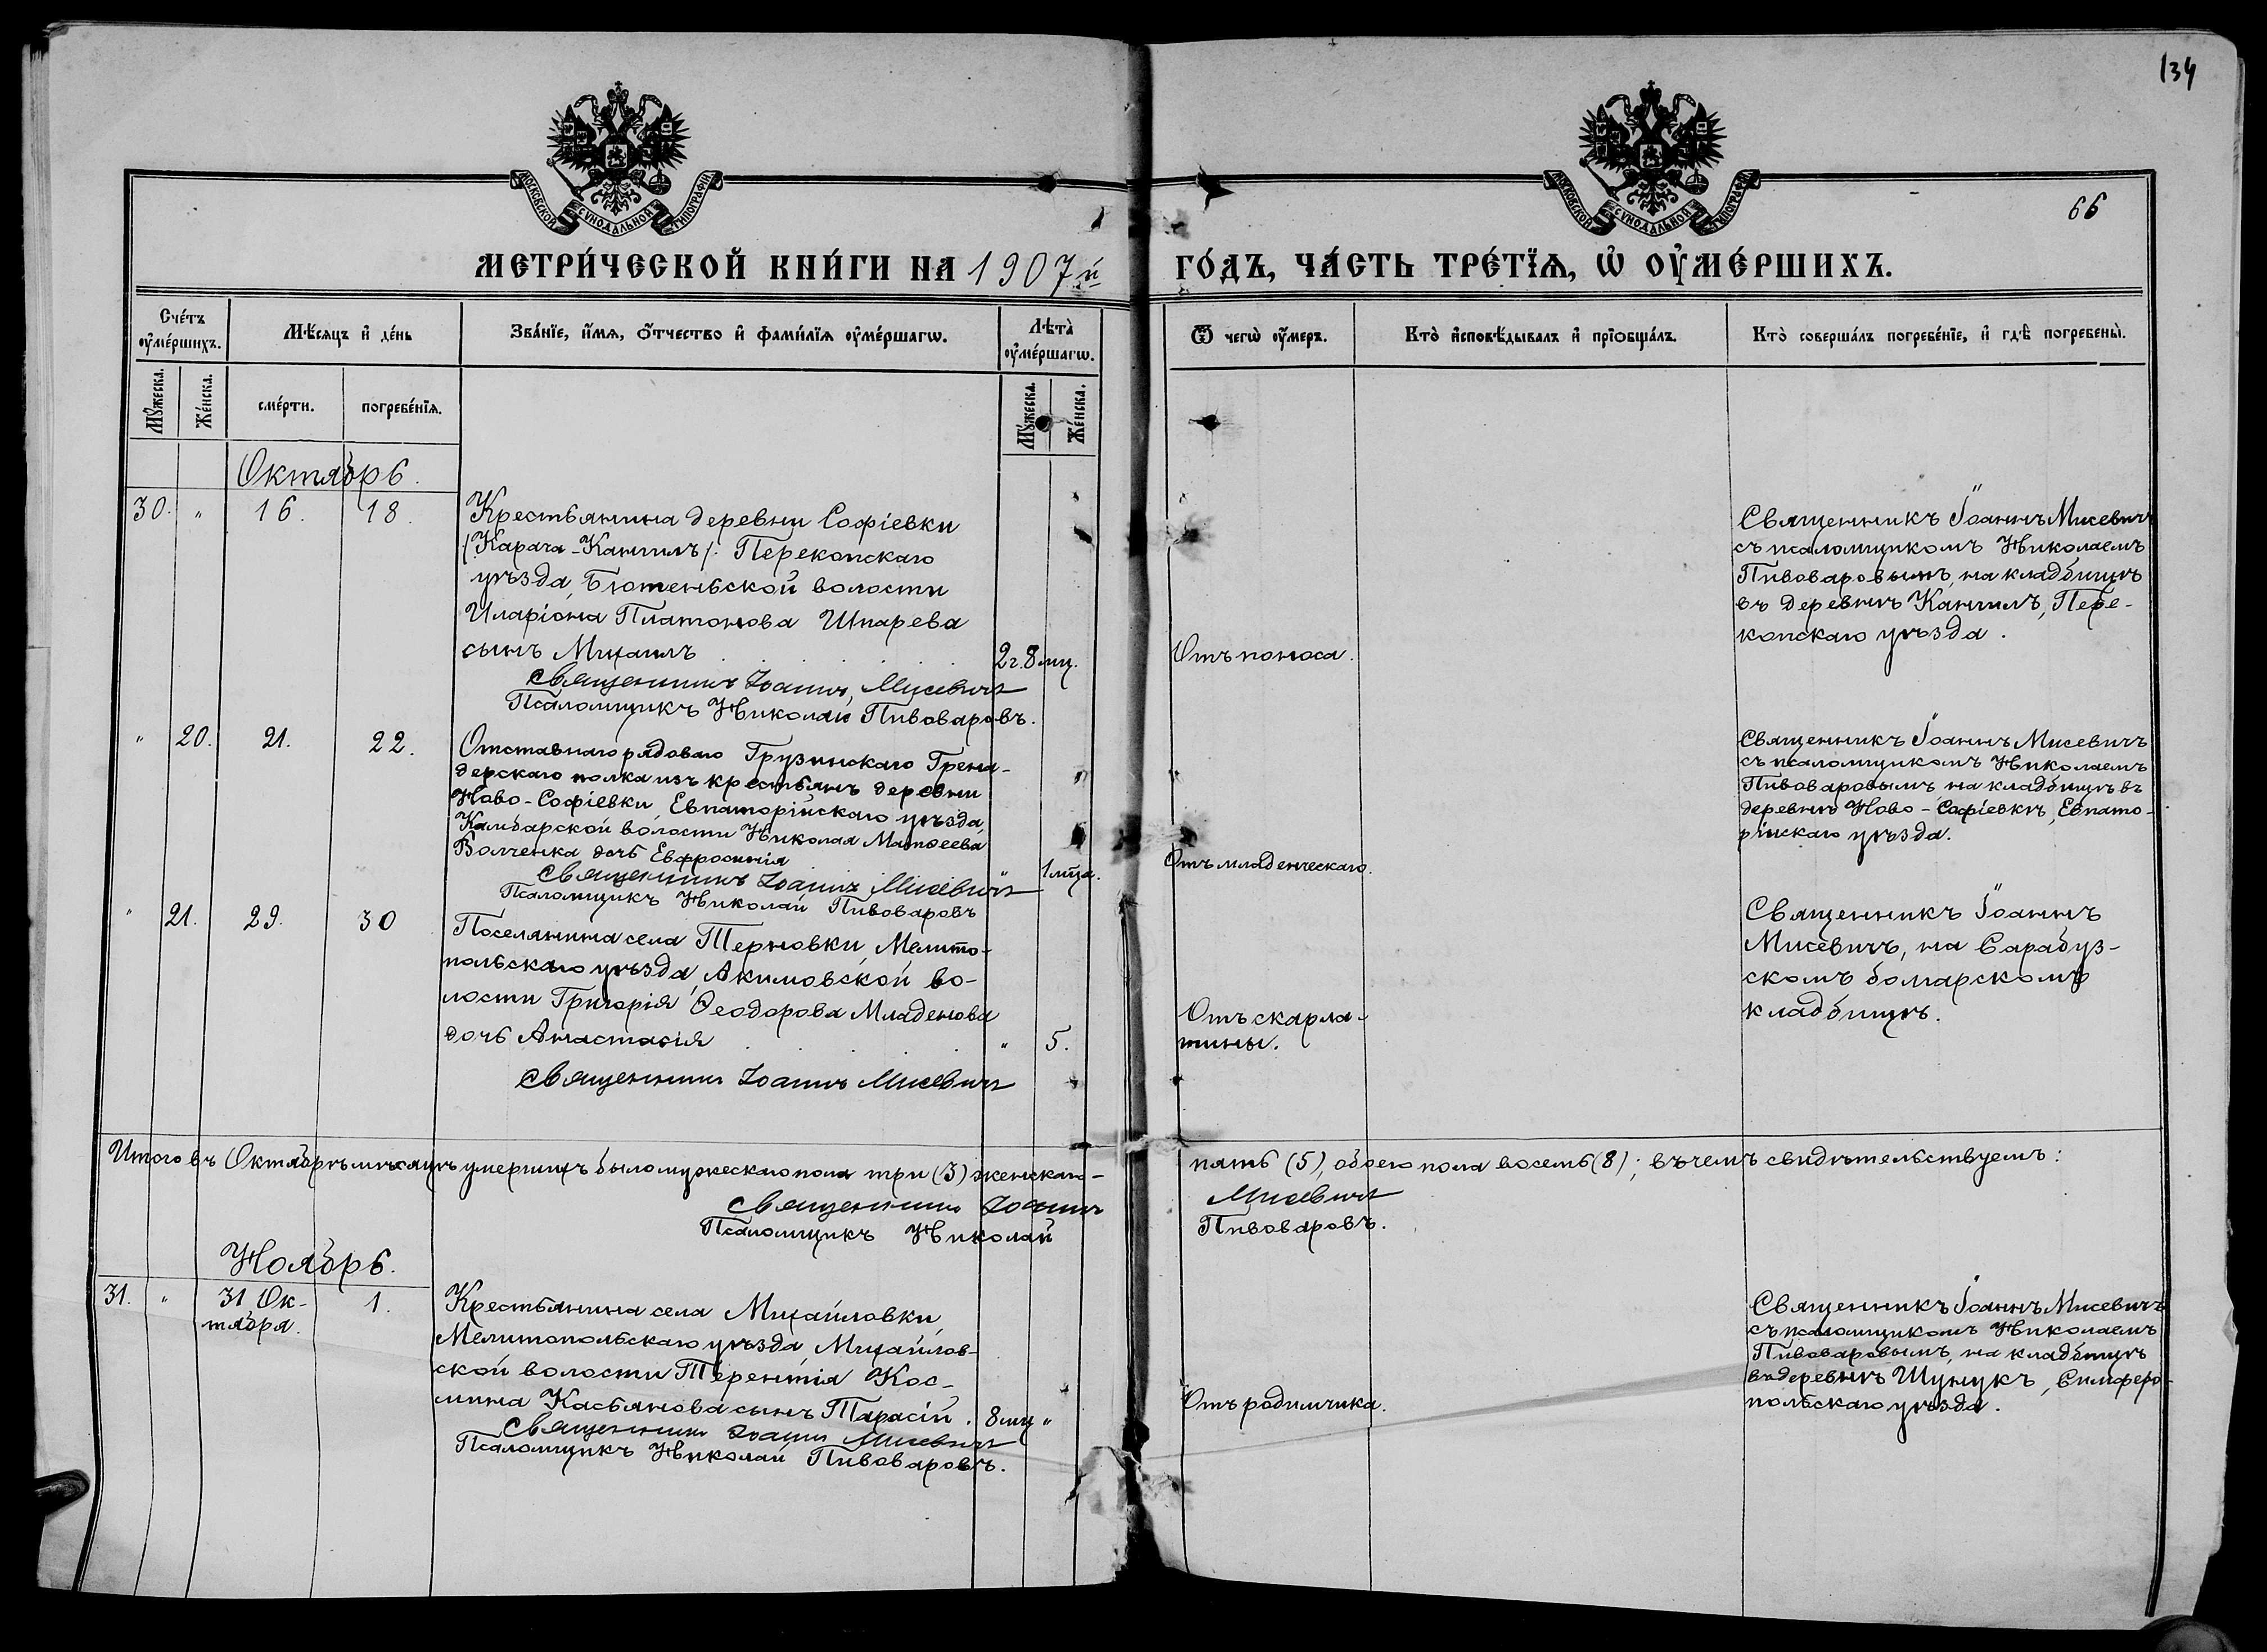 134
66
МОСКОВСКОЙ СѴНОДАЛЬНОЙ ТИПОГРАФІИ
МОСКОВСКОЙ СѴНОДАЛЬНОЙ ТИПОГРАФІИ
МЕТРИ́ЧЕСКОЙ КНИ́ГИ НА 1907й ГО́ДЪ, ЧА́СТЬ ТРЕ́ТЇѦ, Ѡ҆ ОУ҆МЕ́РШИХЪ.
Сче́тъ оу҆ме́ршихъ.
Мѣ́сяцъ и҆ де́нь
Зва́нїе, и҆́мѧ, ѻ҆́тчество и҆ фами́лїѧ оу҆ме́ршагѡ.
Лѣта̀ оу҆ме́ршагѡ.
Ѿ чегѡ̀ оу҆́меръ.
Кто̀ и҆сповѣ́дывалъ и҆ прїѻбща́лъ.
Кто̀ соверша́лъ погребе́нїе, и҆ гдѣ̀ погребены̀.
Мꙋ́жеска.
Же́нска.
сме́рти.
погребе́нїѧ.
Мꙋ́жеска.
Же́нска.
Октябрь.
30. " 16. 18.
Крестьянина деревни Софіевки
/Карача-Кангилъ/. Перекопскаго
уѣзда, Бютеньской волости
Иларіона Платонова Шпарева
сынъ Михаилъ . . . . . 2г. 8мц.
Священникъ Іоаннъ Мисевичъ
Псаломщикъ Николай Пивоваровъ.
Отъ поноса.
Священникъ Іоаннъ Мисевичъ
съ псаломщикомъ Николаемъ
Пивоваровымъ, на кладбищѣ
въ деревнѣ Кангилъ, Пере-
копскаго уѣзда.
" 20. 21. 22.
Отставнаго рядоваго Грузинскаго Грена-
дерскаго полка изъ крестьянъ деревни
Ново-Софіевки, Евпаторійскаго уѣзда,
Камбарской волости Николая Матѳеева
Волченка дочь Евфросинія
1 мѣца.
Священникъ Іоаннъ Мисевичъ
Псаломщикъ Николай Пивоваровъ
Отъ младенческаго.
Священникъ Іоаннъ Мисевичъ
съ псаломщикомъ Николаемъ
Пивоваровымъ на кладбищѣ въ
деревнѣ Ново-Софіевкѣ, Евпато-
рійскаго уѣзда.
" 21. 29. 30
Поселянина села Терновки, Мелито-
польскаго уѣзда, Акимовской во-
лости Григорія Ѳеодорова Младенова
дочь Анастасія . . . . " 5.
Священникъ Іоаннъ Мисевичъ
Отъ скарла-
тины.
Священникъ Іоаннъ
Мисевичъ, на Сарабуз-
скомъ болгарскомъ
кладбищѣ.
Итого въ Октябрѣ мѣсяцѣ умершихъ было мужескаго пола три (3) женскаго- пять (5), обоего пола восемь (8); въ чемъ свидѣтельствуемъ:
Священникъ Іоаннъ Мисевичъ
Псаломщикъ Николай Пивоваровъ.
Ноябрь.
31. " 31 Ок-
тября. 1.
Крестьянина села Михайловки,
Мелитопольскаго уѣзда, Михайлов-
ской волости Терентія Кос-
мина Касьянова сынъ Тарасій. 8мц "
Священникъ Іоаннъ Мисевичъ
Псаломщикъ Николай Пивоваровъ.
Отъ родимчика.
Священникъ Іоаннъ Мисевичъ
съ псаломщикомъ Николаемъ
Пивоваровымъ, на кладбищѣ
въ деревнѣ Шунукъ, Симферо-
польскаго уѣзда.